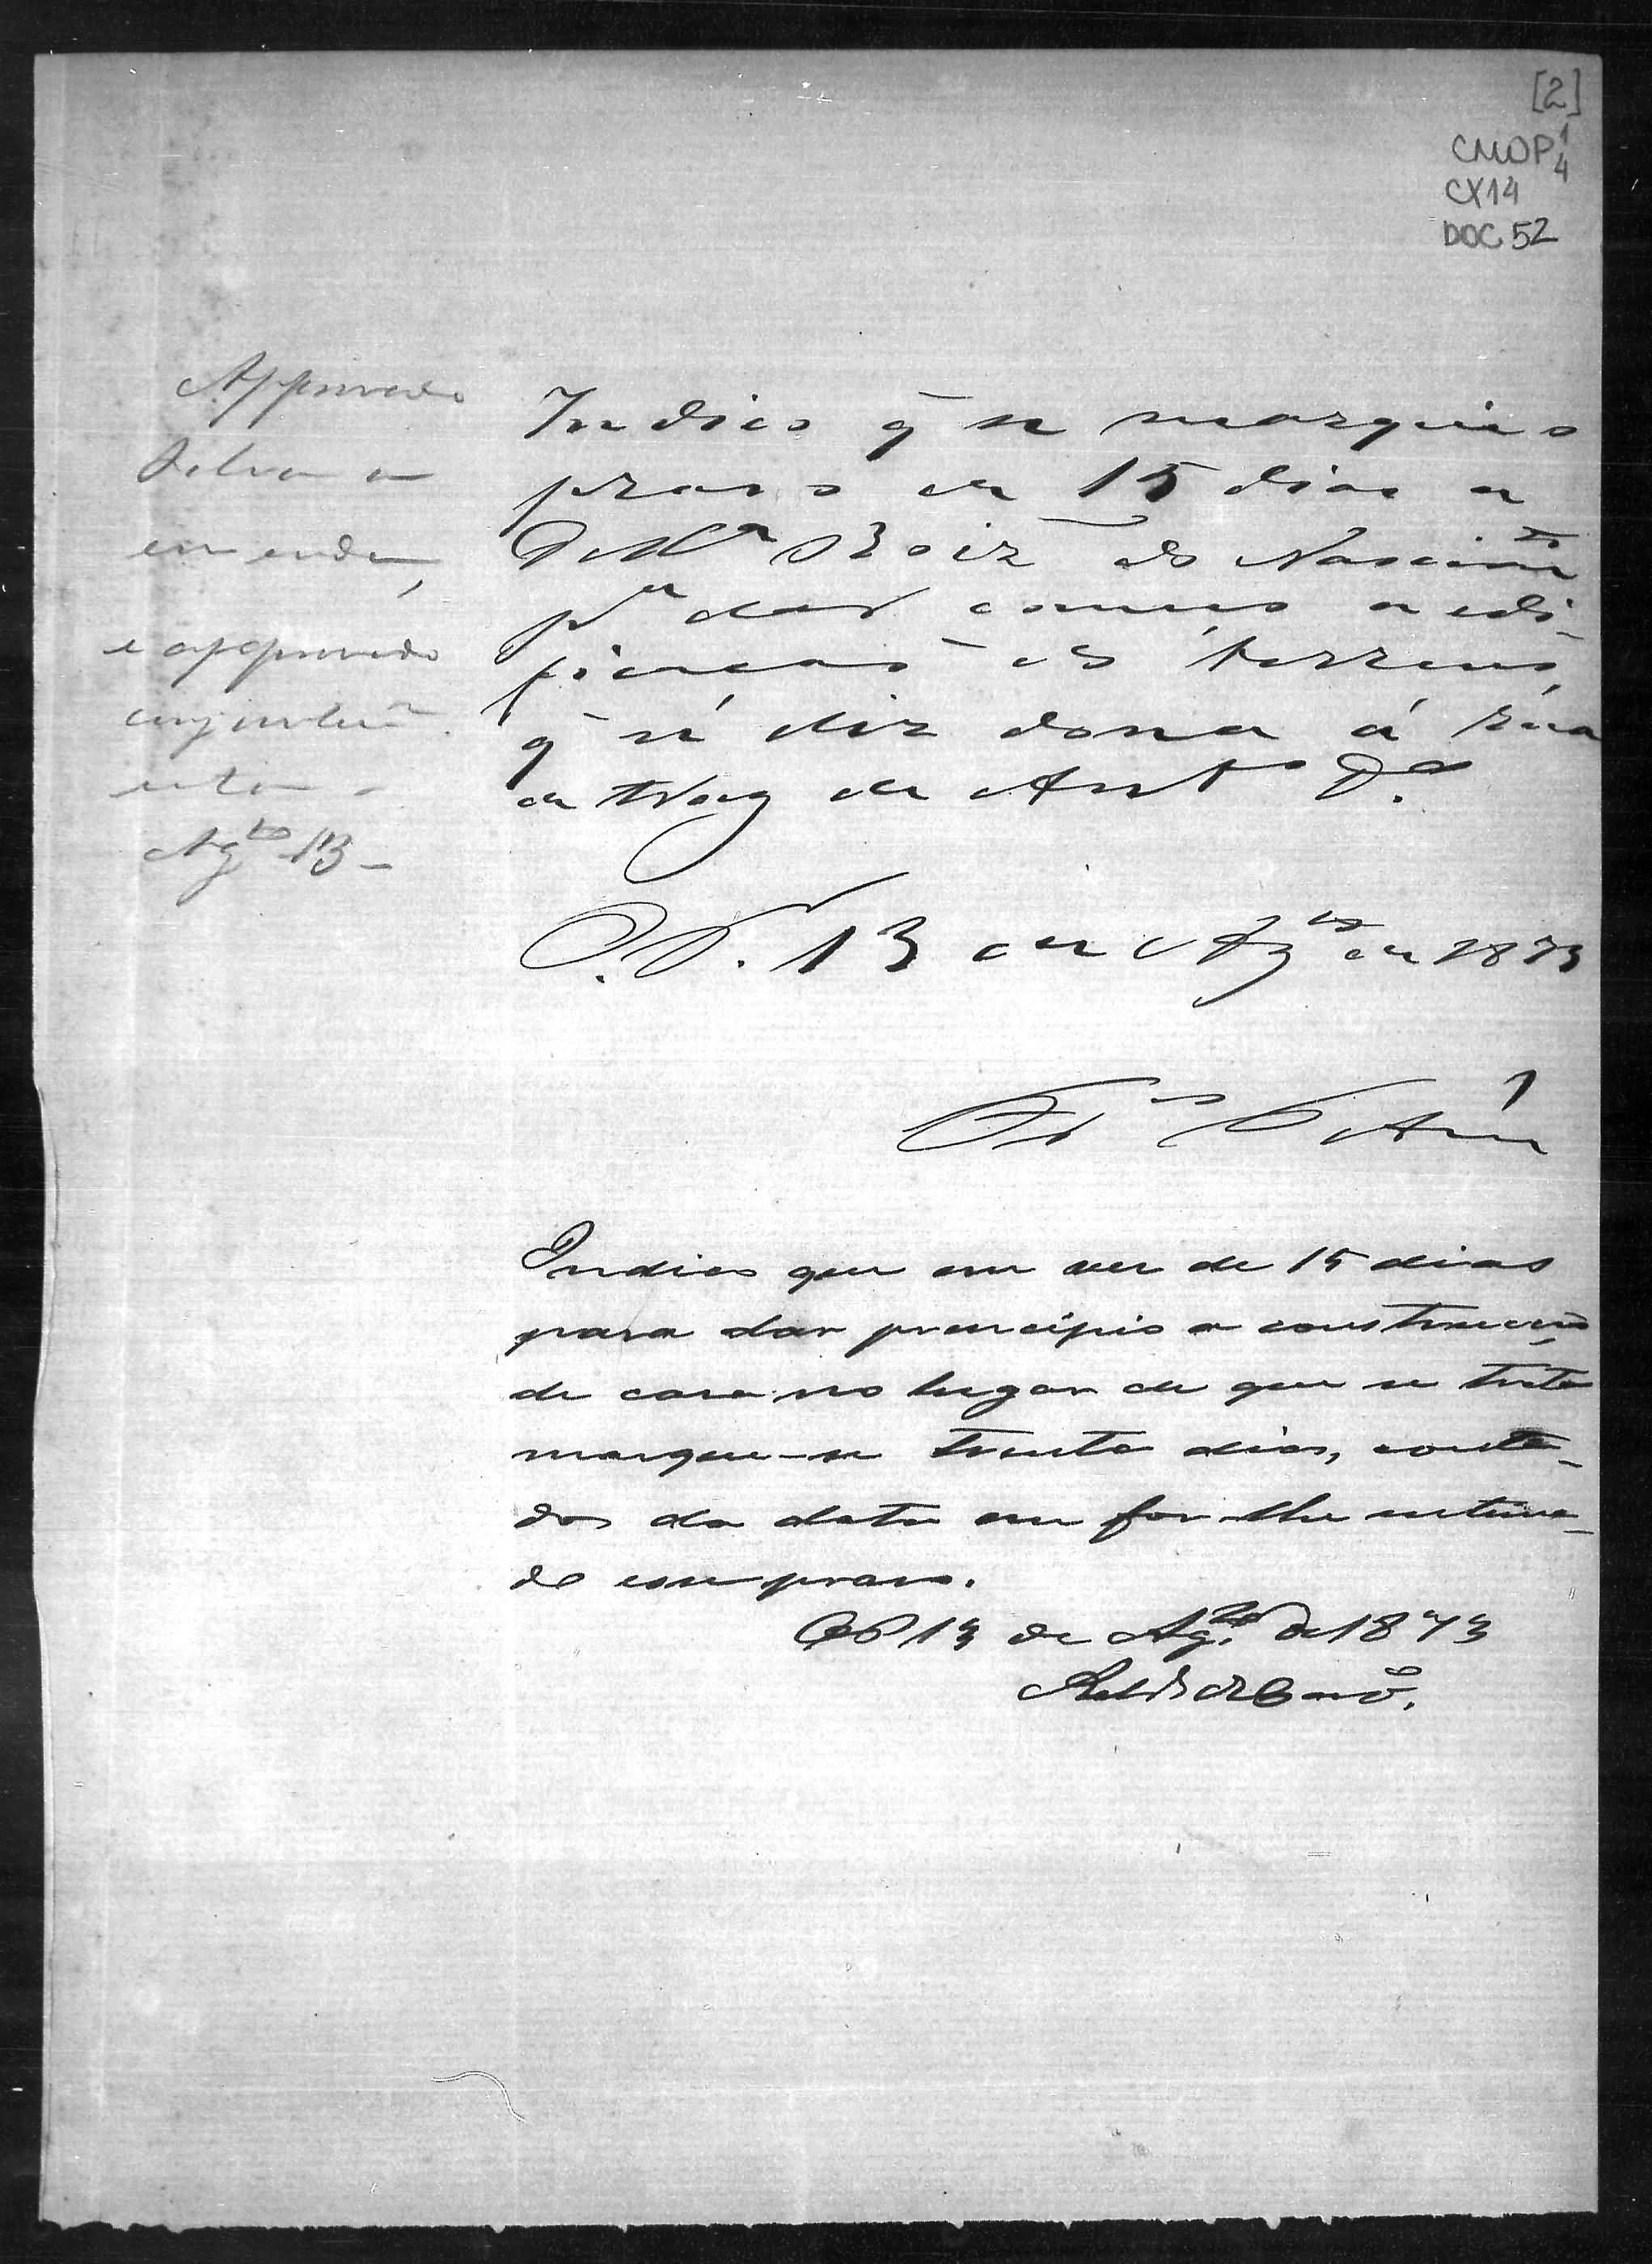 [2]
CMOP 1/4
CX14
DOC 52
Approvado
Salva a
emenda,
e approvado
conjunctam.
esta
Ag.to 13 -
Indico q̃ se marque o
praso de 15 dias a
D. M.a Roiz do Nascim.to
p.a dar começo a edi-
ficação do terreno,
q̃ se diz dona á rua
de Ant.o
O. P. 13 de Ag.to de 1873
Indico que em vez de 15 dias
para dar principio a construcção
de casa no lugar de que se trata
marque-se trinta dias, conta-
dos da data em for-lhe intima-
do esse praso.
OP 13 de Ag.to de 1873